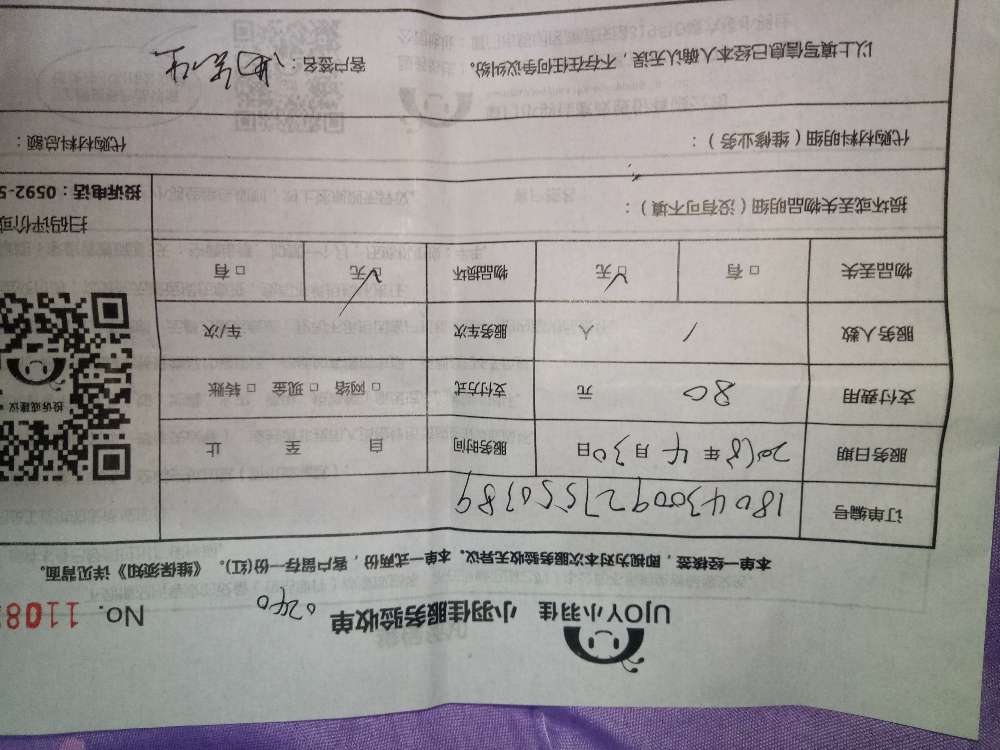 UJOY小羽佳 小羽佳服务验收单 0240 No. 1108
本单一经核签，即视为对本次服务验收无异议。本单一式两份，客户留存一份(红)。《维保须知》详见背面。
订单编号 180430092755
服务日期 2018年4月30日 服务时间 自 至 止
支付费用 80 元 支付方式 □ 网络 □ 现金 □ 转账
服务人数 1 人 服务车次 车/次
物品丢失 □ 有 ☑ 无 物品损坏 ☑ 无 □ 有
损坏或丢失物品明细（没有可不填）：
投诉或建议
扫码评价或
投诉电话：0592-5
代购材料明细（维修业务）： 代购材料总额：
以上填写信息已经本人确认无误，不存在任何争议纠纷。 客户签名：